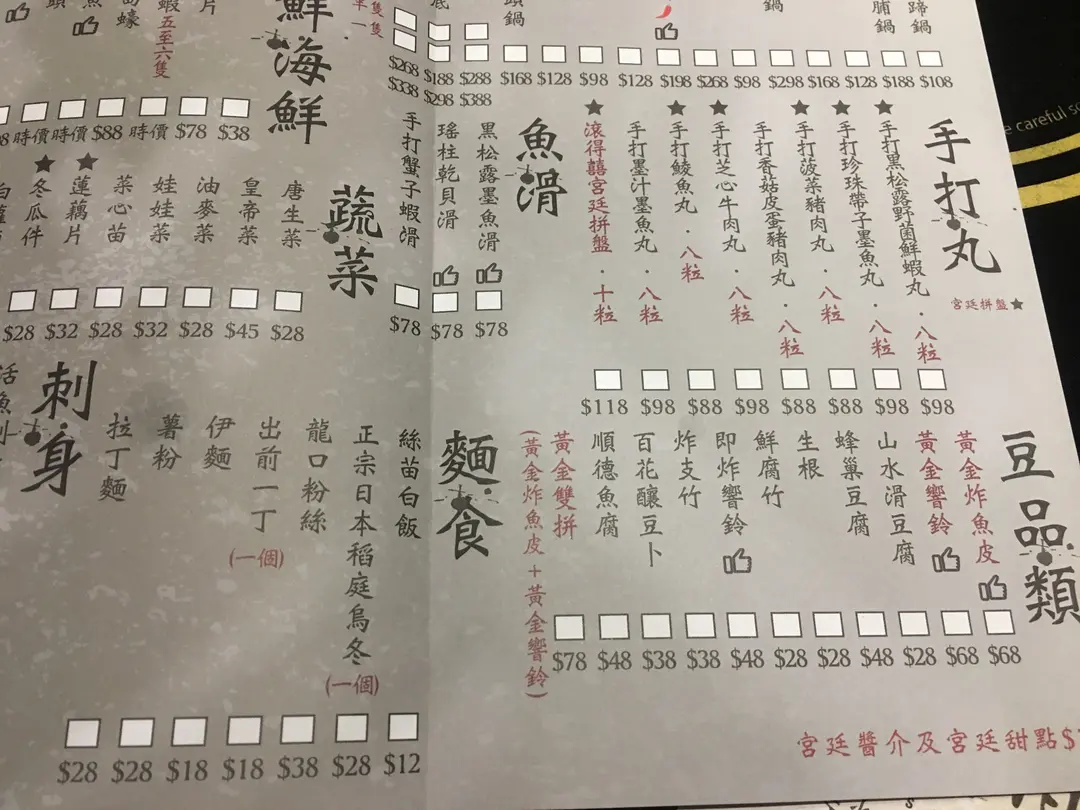 $108
$188
$128
$168
$298
$98
$268
$198
$128
$98
$128
$168
$288
$388
$188
$298
$268
$338
手打丸
宮廷拼盤★
手打黑松露野菌鮮蝦丸．八粒
$98
手打珍珠帶子墨魚丸．八粒
$98
手打菠菜豬肉丸．八粒
$88
手打香菇皮蛋豬肉丸．八粒
$88
手打芝心牛肉丸．八粒
$98
手打鯪魚丸．八粒
$88
手打墨汁墨魚丸．八粒
$98
滾得囍宮廷拼盤．十粒
$118
魚滑
黑松露墨魚滑
$78
瑤柱乾貝滑
$78
手打蟹子蝦滑
$78
海鮮
$38
$78
時價
$88
時價
時價
五至六隻
蔬菜
唐生菜
$28
皇帝菜
$45
油麥菜
$28
娃娃菜
$32
菜心苗
$28
蓮藕片
$32
冬瓜件
$28
豆品類
黃金炸魚皮
$68
黃金響鈴
$68
山水滑豆腐
$28
蜂巢豆腐
$48
生根
$28
鮮腐竹
$28
即炸響鈴
$48
炸支竹
$38
百花釀豆卜
$38
順德魚腐
$48
黃金雙拼
(黃金炸魚皮+黃金響鈴)
$78
麵食
絲苗白飯
$12
正宗日本稻庭烏冬(一個)
$28
龍口粉絲
$38
出前一丁(一個)
$18
伊麵
$18
薯粉
$28
拉丁麵
$28
刺身
宮廷醬介及宮廷甜點$
e careful